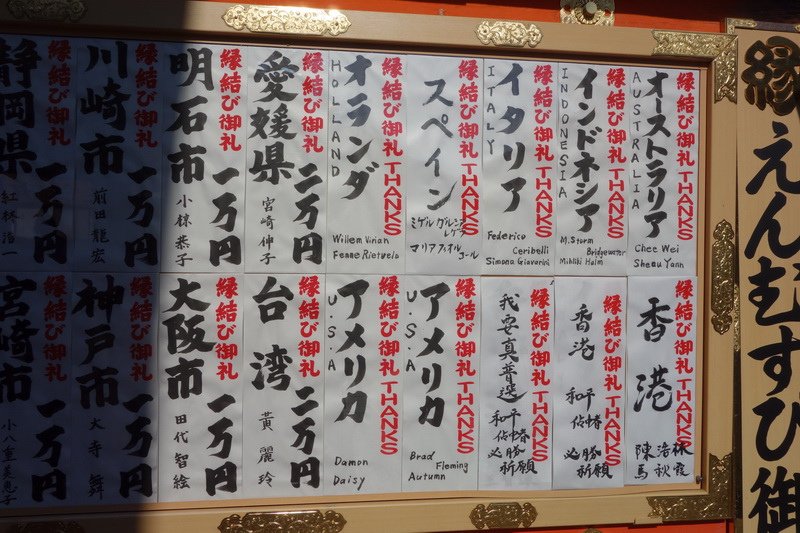 縁
えんむすび御
縁結び御礼 THANKS
オーストラリア
AUSTRALIA
Chee Wei
Sheau Yann
縁結び御礼 THANKS
インドネシア
INDONESIA
M.Storm
Bridgewater
Mihliki Haim
縁結び御礼 THANKS
イタリア
ITALY
Federico
Ceribelli
Simona Giavarini
縁結び御礼 THANKS
スペイン
縁結び御礼 THANKS
オランダ
HOLLAND
Willem Vivian
Femme Rietveld
縁結び御礼
愛媛県
二万円
宮崎伸子
縁結び御礼
明石市
一万円
小林恭子
縁結び御礼
川崎市
一万円
前田龍宏
縁結び御礼
静岡県
一万円
紅林浩一
縁結び御礼 THANKS
香港
陳洛林
馬秋霞
縁結び御礼 THANKS
香港
和平佔中
必勝祈願
縁結び御礼 THANKS
我要真普選
和平佔中
必勝祈願
縁結び御礼 THANKS
アメリカ
U.S.A
Brad
Fleming
Autumn
縁結び御礼 THANKS
アメリカ
U.S.A
Damon
Daisy
縁結び御礼
台湾
二万円
黃麗玲
縁結び御礼
大阪市
一万円
田代智絵
縁結び御礼
神戸市
一万円
大寺舞
縁結び御礼
宮崎市
一万円
小八重美恵子